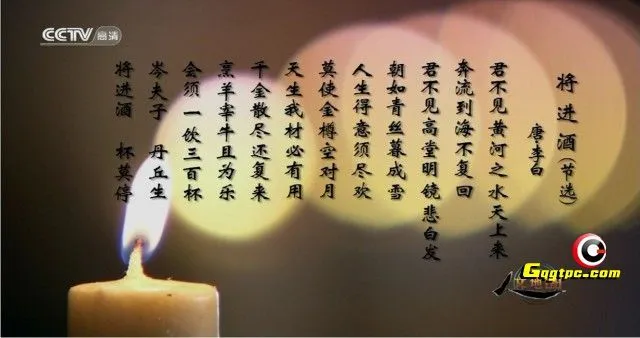 CCTV 高清
将进酒(节选)
唐·李白
君不见 黄河之水天上来
奔流到海不复回
君不见高堂明镜悲白发
朝如青丝暮成雪
人生得意须尽欢
莫使金樽空对月
天生我材必有用
千金散尽还复来
烹羊宰牛且为乐
会须一饮三百杯
岑夫子 丹丘生
将进酒 杯莫停
Gqgtpc.com